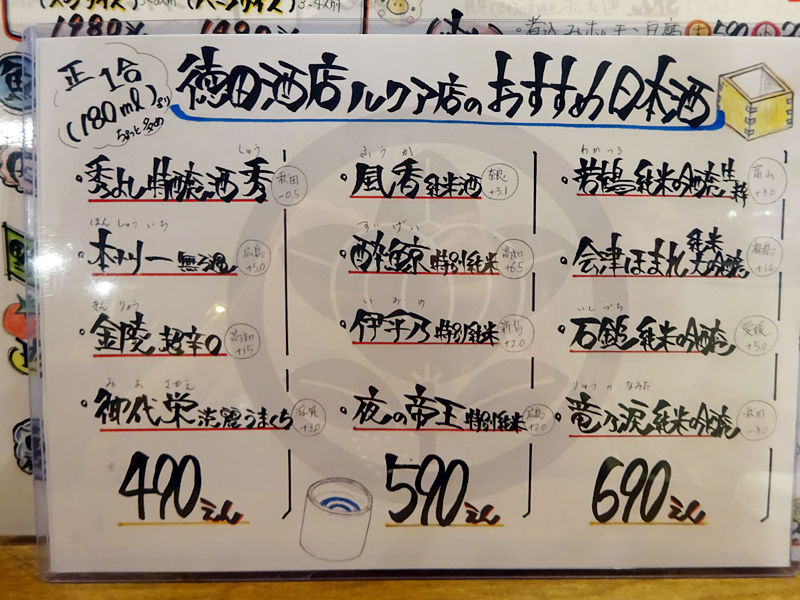 1980% 1490%
煮込みホルモン豆腐
正一合
(180ml)より
ちょっと多め
徳田酒店ルクア店のおすすめ日本酒
しゅう
・秀よし 特醸酒 秀 秋田 -0.5
ほんしゅういち
・本州一 無ろ過 広島 +5.0
きんりょう
・金陵 超辛口 高知 +15
みよさかえ
・御代栄 淡麗うまくち 滋賀 +3.0
490えん
ふうか
・風香 純米酒 奈良 +3.1
すいげい
・酔鯨 特別純米 高知 +6.5
いおの
・伊乎乃 特別純米 新潟 +2.0
・夜の帝王 特別純米 広島 +2.0
590えん
わかつる
・若鶴 純米吟醸生粋 富山 +3.0
・会津ほまれ 純米大吟醸 福島 +1.0
いしづち
・石鎚 純米吟醸 愛媛 +5.0
りゅうのなみだ
・竜乃涙 純米吟醸 秋田 -3.0
690えん